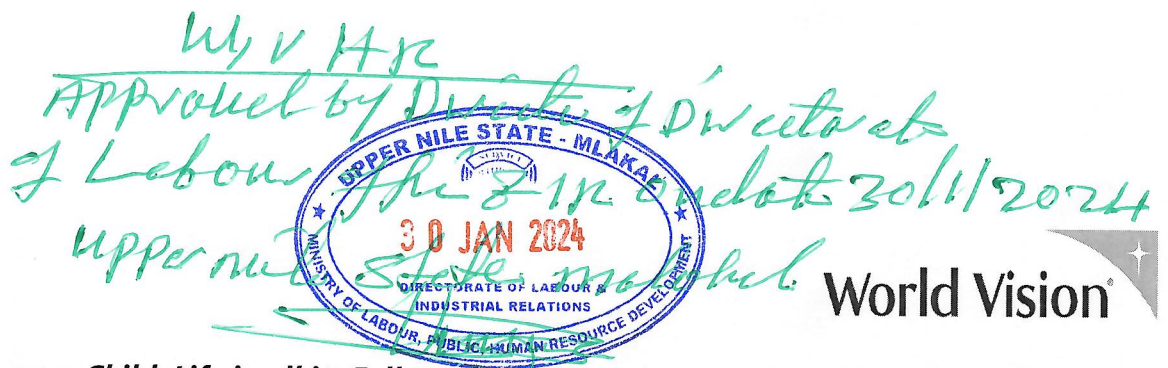 W, V HR
Approved by Director of Directorate
of Labour & IR on date 30/1/2024
Upper nile State malakal
UPPER NILE STATE - MLAKAL
SERVICE
30 JAN 2024
DIRECTORATE OF LABOUR &
INDUSTRIAL RELATIONS
MINISTRY OF LABOUR, PUBLIC, HUMAN RESOURCE DEVELOPMENT
World Vision